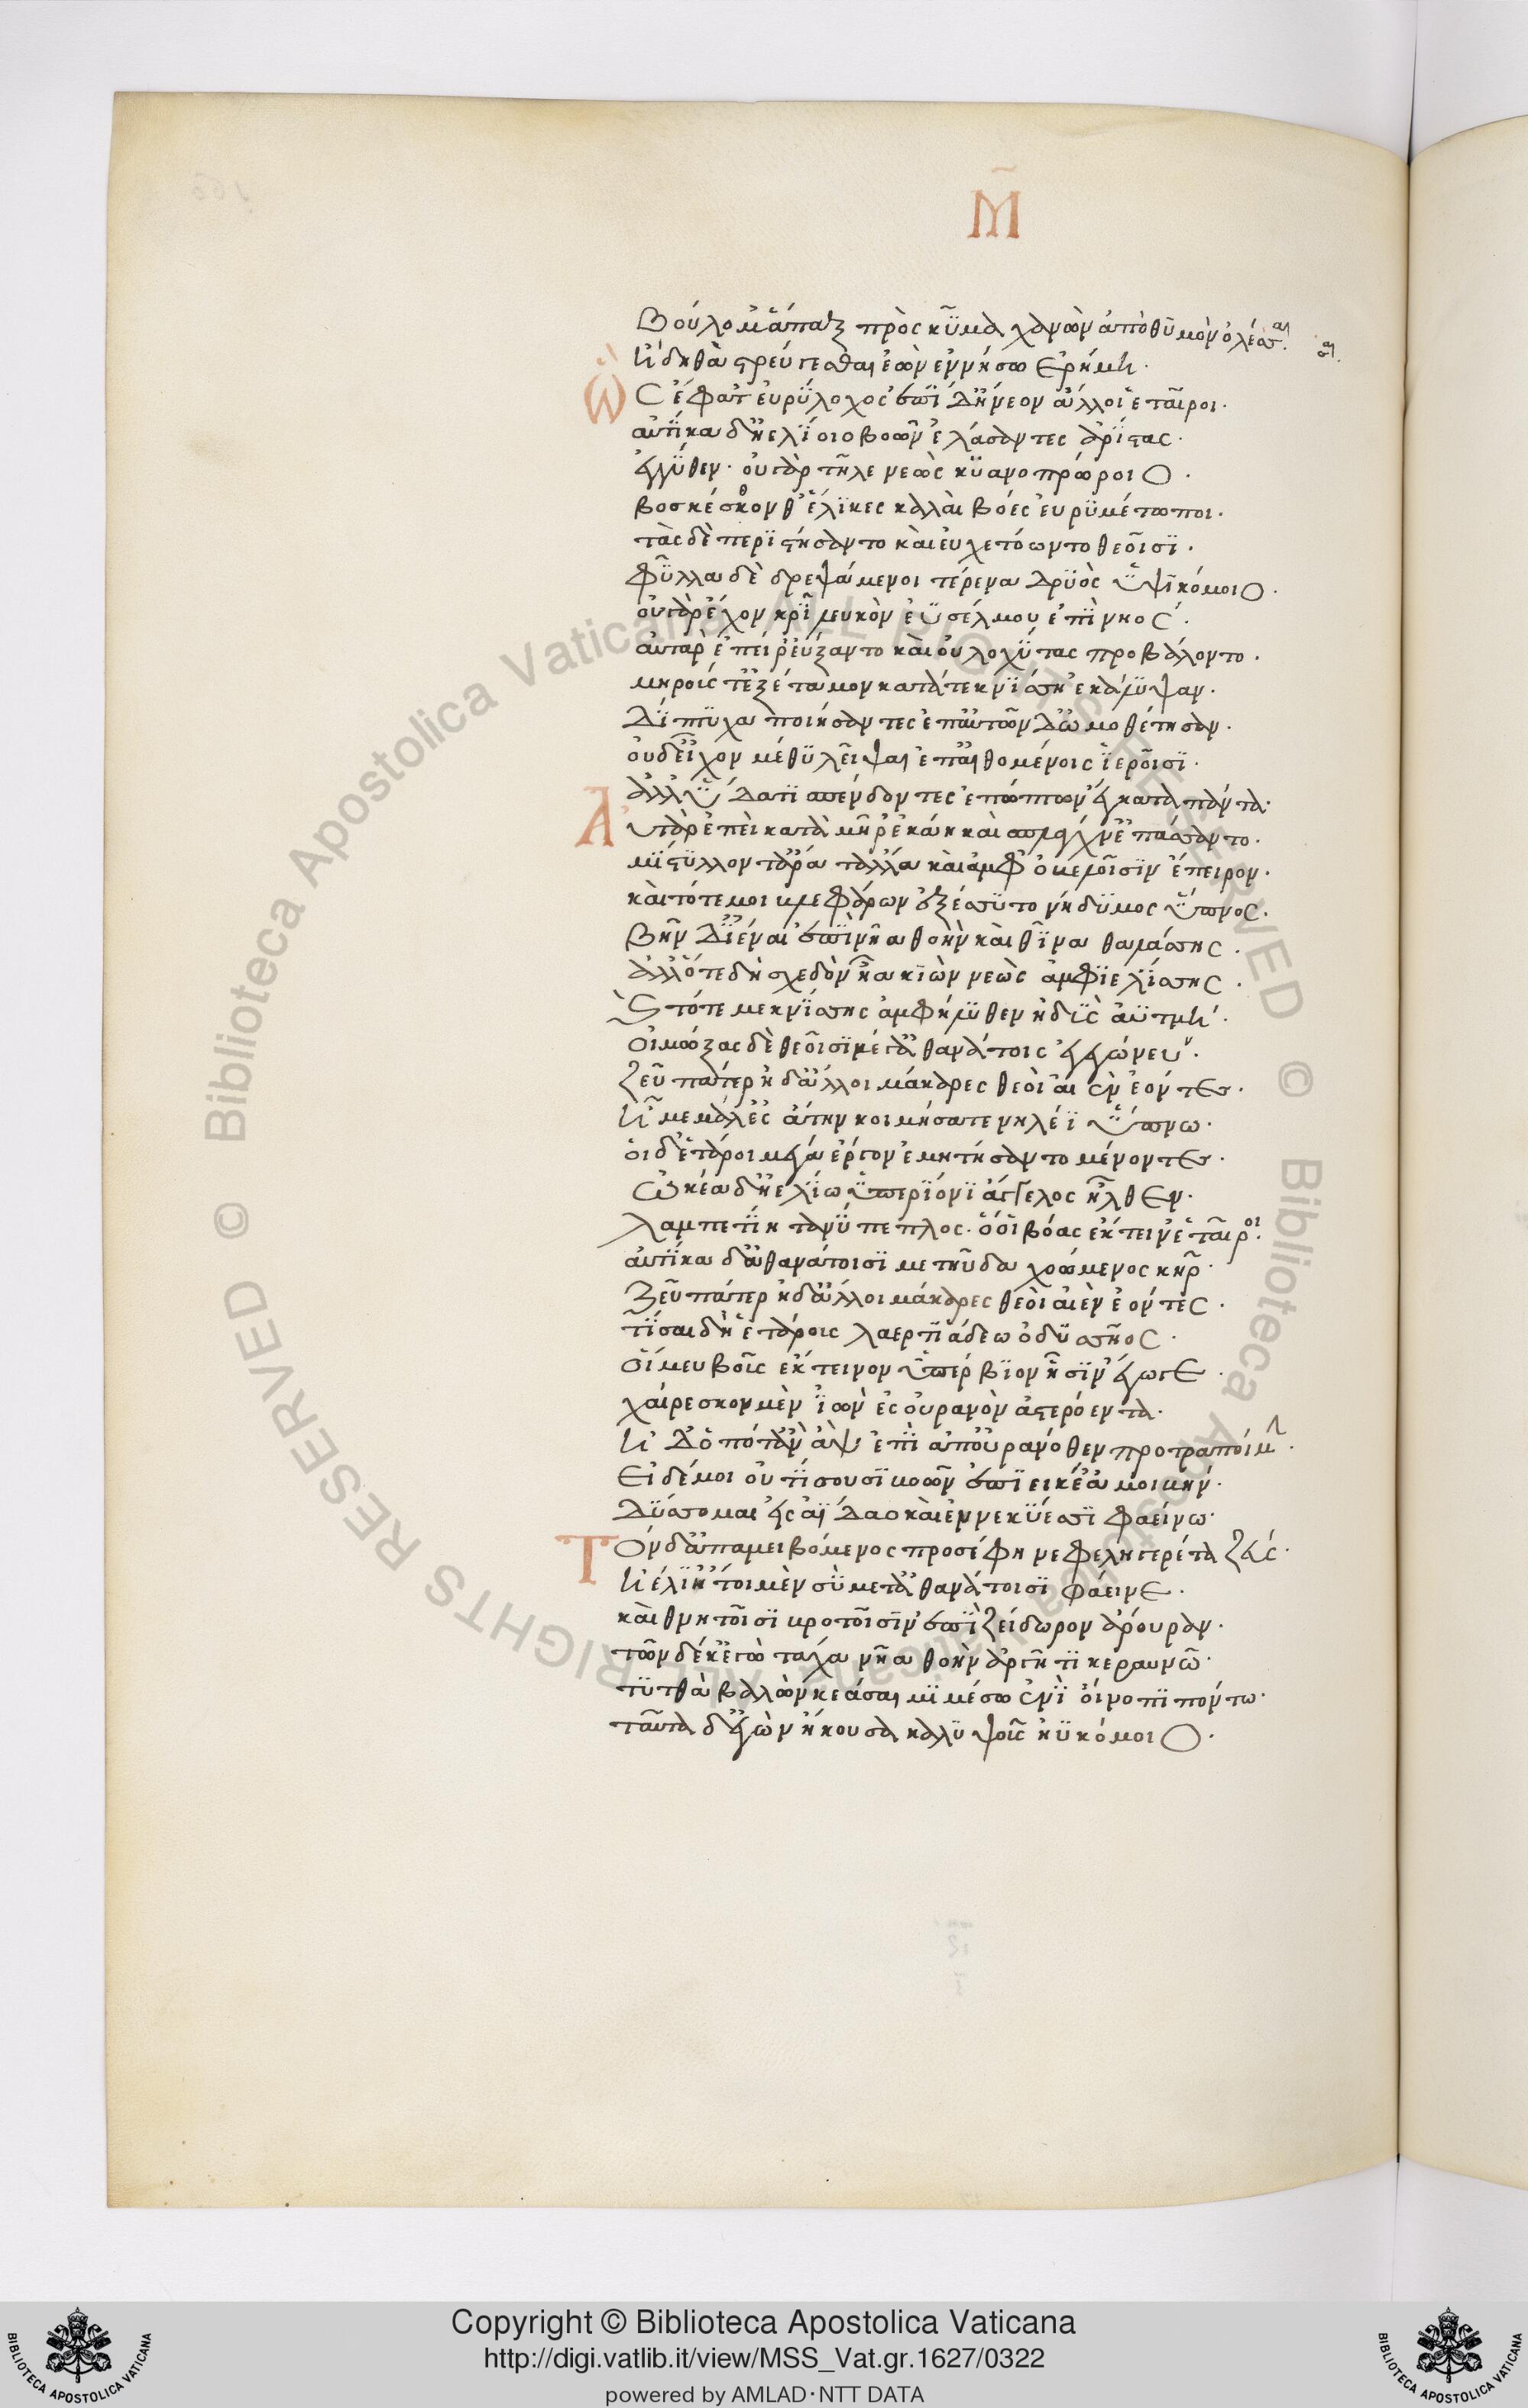 Μ̃
Βούλομ' ἅπαξ πρὸς κῦμα χανὼν ἀπὸ θυμὸν ὀλέσσαι.
ἢ δηθὰ στρεύγεσθαι ἐὼν ἐν νήσω ἐρήμη.
Ὣς ἔφατ' εὐρύλοχος ἐπὶ δ' ἤνεον ἄλλοι ἑταῖροι.
αὐτίκα δ' ἠελίοιο βοῶν ἐλάσαντες ἀρίστας.
ἐγγύθεν. οὐ γὰρ τῆλε νεὼς κυανοπρώροιο.
βοσκέσκονθ' ἕλικες καλαὶ βόες εὐρυμέτωποι.
τὰς δὲ περιστήσαντο καὶ εὐχετόωντο θεοῖσι.
φύλλα δὲ δρεψάμενοι τέρενα δρυὸς ὑψικόμοιο.
οὐ γὰρ ἔχον κρῖ λευκὸν ἐϋσέλμου ἐπὶ νηός.
αὐτὰρ ἐπεί ρ' εὔξαντο καὶ οὐλοχύτας προβάλοντο.
μηρούς τ' ἐξέταμον κατά τε κνίσση ἐκάλυψαν.
δίπτυχα ποιήσαντες ἐπ' αὐτῶν δ' ὠμοθέτησαν.
οὐδ' εἶχον μέθυ λεῖψαι ἐπ' αἰθομένοις ἱεροῖσι.
ἀλλ' ὕδατι σπένδοντες ἐπώπτων ἔγκατα πάντα.
Αὐτὰρ ἐπεὶ κατὰ μῆρ' ἐκάη καὶ σπλάγχν' ἐπάσαντο.
μίστυλλον τ' ἄρα τἄλλα καὶ ἀμφ' ὀβελοῖσιν ἔπειρον.
καὶ τότε μοι βλεφάρων ἐξέσσυτο νήδυμος ὕπνος.
βῆν δ' ἰέναι ἐπὶ νῆα θοὴν καὶ θῖνα θαλάσσης.
ἀλλ' ὅτε δὴ σχεδὸν ἦα κιὼν νεὼς ἀμφιελίσσης.
καὶ τότε με κνίσσης ἀμφήλυθεν ἡδὺς ἀϋτμή.
οἰμώξας δὲ θεοῖσι μέγ' ἀθανάτοις ἐγεγώνευν.
Ζεῦ πάτερ ἠδ' ἄλλοι μάκαρες θεοὶ αἰὲν ἐόντες.
ἦ με μάλ' ἐς ἄτην κοιμήσατε νηλέϊ ὕπνω.
οἱ δ' ἕταροι μέγα ἔργον ἐμητίσαντο μένοντες.
ὠκέα δ' ἠελίω ὑπερίονι ἄγγελος ἦλθεν.
λαμπετίη τανύπεπλος. ὅ οἱ βόας ἔκτειν' ἑταῖροι.
αὐτίκα δ' ἀθανάτοισι μετηύδα χωόμενος κῆρ.
Ζεῦ πάτερ ἠδ' ἄλλοι μάκαρες θεοὶ αἰὲν ἐόντες.
τῖσαι δὴ ἑτάροις λαερτιάδεω ὀδυσσῆος.
οἵ μευ βοῦς ἔκτεινον ὑπέρβιον ἧσιν ἔγωγε.
χαίρεσκον μὲν ἰὼν ἐς οὐρανὸν ἀστερόεντα.
ἠδ' ὁπότ' ἂν ἂψ ἐπὶ ἀπ' οὐρανόθεν προτραποίμην.
Εἰ δέ μοι οὐ τίσουσι βοῶν ἐπιεικέ' ἀμοιβήν.
δύσομαι εἰς ἀΐδαο καὶ ἐν νεκύεσσι φαείνω.
Τὸν δ' ἀπαμειβόμενος προσέφη νεφεληγερέτα ζεύς.
ἠέλι' ἤτοι μὲν σὺ μετ' ἀθανάτοισι φάεινε.
καὶ θνητοῖσι βροτοῖσιν ἐπὶ ζείδωρον ἄρουραν.
τῶν δέ κ' ἐγὼ τάχα νῆα θοὴν ἀργῆτι κεραυνῶ.
τυτθὰ βαλὼν κεάσαιμι μέσω ἐνὶ οἴνοπι πόντω.
ταῦτα δ' ἐγὼν ἤκουσα καλυψοῦς ἠϋκόμοιο.
Copyright © Biblioteca Apostolica Vaticana
http://digi.vatlib.it/view/MSS_Vat.gr.1627/0322
powered by AMLAD·NTT DATA